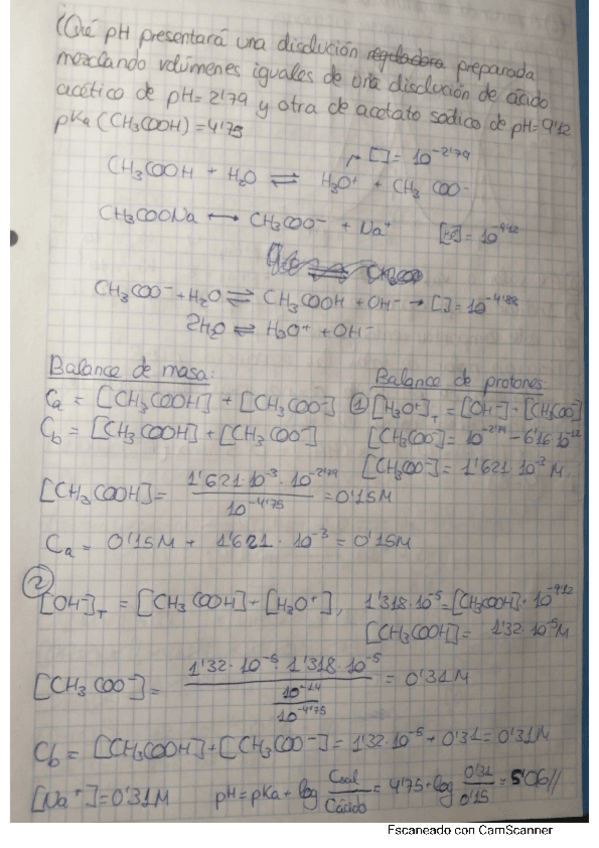 ¿Qué pH presentará una disolución reguladora preparada
mezclando volúmenes iguales de una disolución de ácido
acético de pH=2'79 y otra de acetato sodico de pH=9'12
pKa (CH3COOH)=4'75
[ ]= 10^-2'79
CH3COOH + H2O ⇌ H3O+ + CH3COO-
CH3COONa → CH3COO- + Na+
= 10^-9'12
CH3COO- + H2O ⇌ CH3COOH + OH- → [ ]=10^-4'88
2H2O ⇌ H3O+ + OH-
Balance de masa:
Balance de protones
Ca = [CH3COOH] + [CH3COO-]
① [H3O+]T = [OH-] + [CH3COO-]
Cb = [CH3COOH] + [CH3COO-]
[CH3COO-] = 10^-2'79 - 6'16·10^-12
[CH3COO-] = 1'621·10^-3 M
[CH3COOH] = 1'621·10^-3 · 10^-2'79 / 10^-4'75 = 0'15M
Ca = 0'15M + 1'621·10^-3 = 0'15M
②
[OH-]T = [CH3COOH] + [H3O+], 1'318·10^-5 = [CH3COOH] + 10^-9'12
[CH3COOH] = 1'32·10^-5 M
[CH3COO-] = 1'32·10^-5 · 1'318·10^-5 / 10^-14 / 10^-4'75 = 0'31M
Cb = [CH3COOH]+[CH3COO-] = 1'32·10^-5 + 0'31 = 0'31M
[Na+] = 0'31M pH = pKa + log Csal/Cácido = 4'75 + log 0'31/0'15 = 5'06//
Escaneado con CamScanner